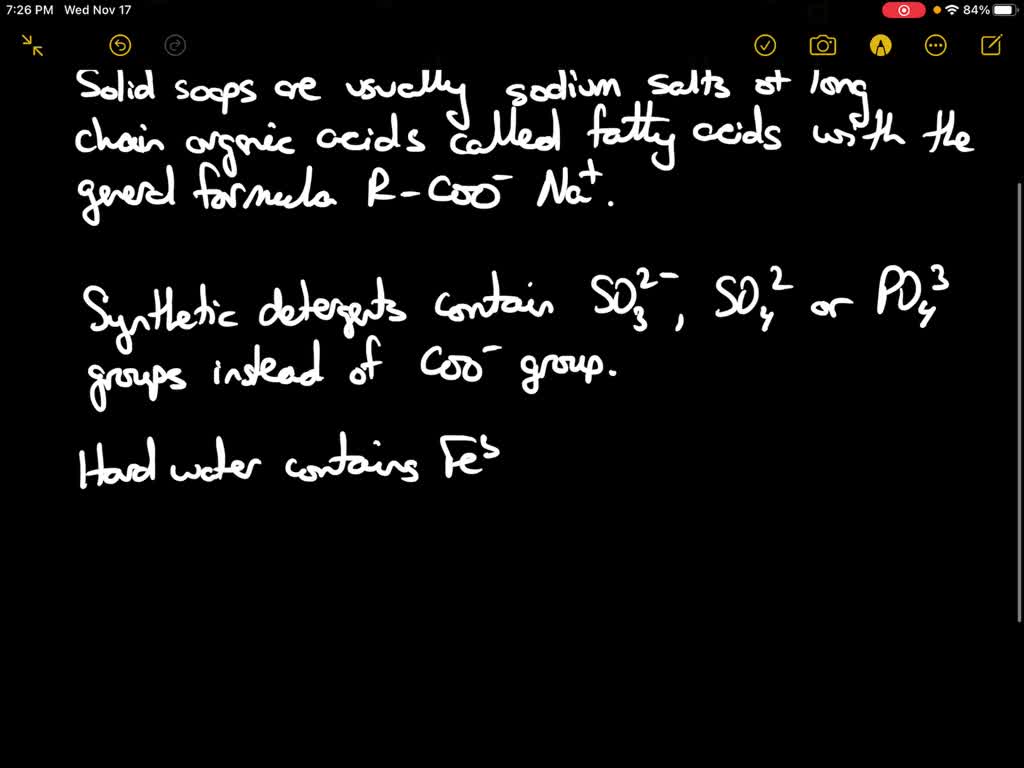 7:26 PM Wed Nov 17 84%
Solid soaps are usually sodium salts of long
chain organic acids called fatty acids with the
general formula R-COO⁻ Na⁺.
Synthetic detergents contain SO₃²⁻, SO₄² or PO₄³
groups instead of COO⁻ group.
Hard water contains Fe³